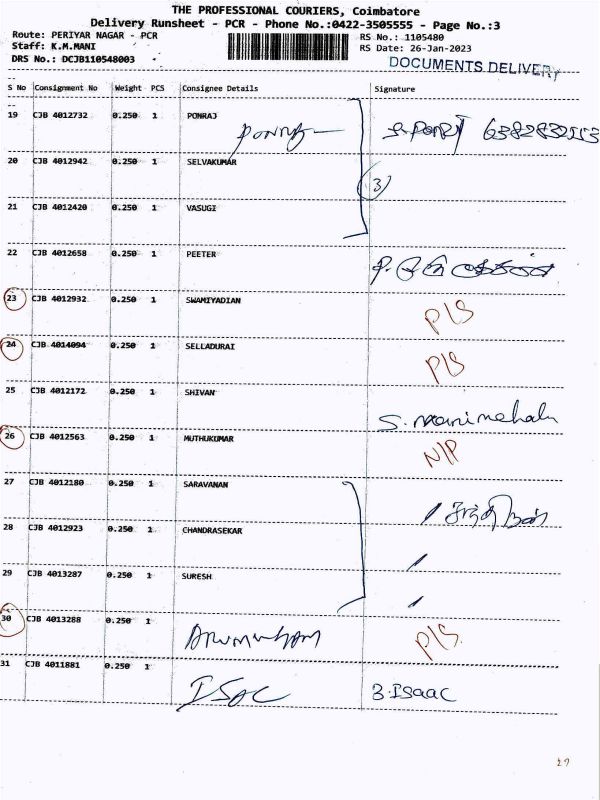 THE PROFESSIONAL COURIERS, Coimbatore
Delivery Runsheet - PCR - Phone No.:0422-3505555 - Page No.:3
Route: PERIYAR NAGAR - PCR
RS No.: 1105480
Staff: K.M.MANI
RS Date: 26-Jan-2023
DRS No.: DCJB110548003
DOCUMENTS DELIVERY
S No Consignment No Weight PCS Consignee Details Signature
19 CJB 4012732 0.250 1 PONRAJ
20 CJB 4012942 0.250 1 SELVAKUMAR
3)
21 CJB 4012420 0.250 1 VASUGI
22 CJB 4012658 0.250 1 PEETER
23 CJB 4012932 0.250 1 SWAMIYADIAN P/S
24 CJB 4014094 0.250 1 SELLADURAI P/S
25 CJB 4012172 0.250 1 SHIVAN
26 CJB 4012563 0.250 1 MUTHUKUMAR N/P
27 CJB 4012180 0.250 1 SARAVANAN
28 CJB 4012923 0.250 1 CHANDRASEKAR
29 CJB 4013287 0.250 1 SURESH
30 CJB 4013288 0.250 1 P/S
31 CJB 4011881 0.250 1 3.ISaac
27